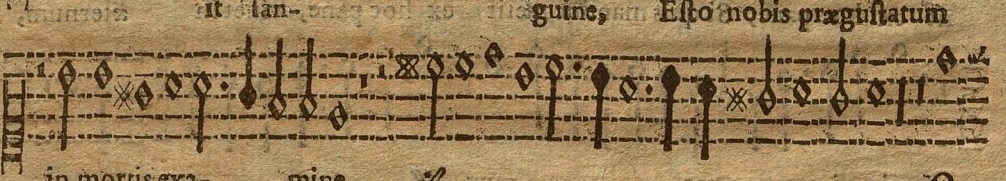 it ſan- guine, Eſto nobis præguſtatum
in mortis exa- mine ij